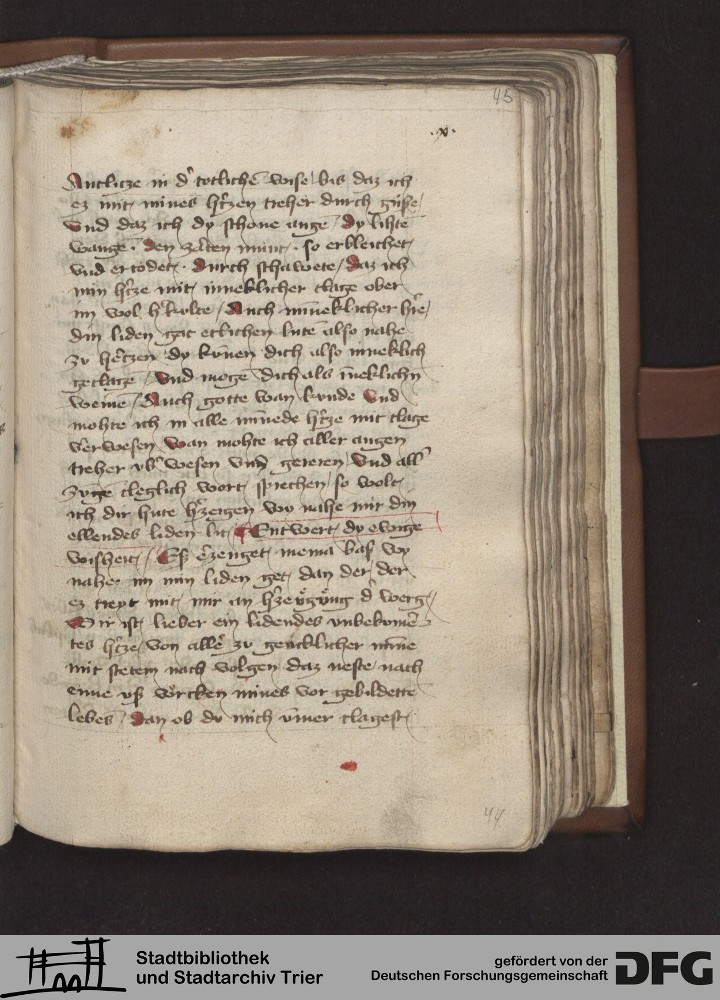 45
.x.
Antlicze in d' totlichē wise / bis daz ich
ez mit mines h'zen treher durch güsse /
Vnd daz ich dy schone auge / dy lihte
wange . den zarten munt . so erbleichet
vnd ertodet . Durch schawete / Daz ich
min h'cze mit inneklicher clage ober
Auch inneklicher h're /
din liden gat etlichen lute also nahe
zu h'czen / dy kunen dich also inneklich
geclage / Vnd moge dich als ineklichn
weine / Auch gotte wan kunde Vnd
mohte ich in alle minnede h'cze mit clage
verwesen wan mohte ich aller augen
treher vb' wesen vnd gereren / vnd all'
zunge cleglich wort sprechen / so wolt
ich dir hute h'zeigen wy nahe mir din
ellendes liden lit / Entwert dy ewige
wisheit / Ess erzeuget niema bass wy
nahe im min liden get / dan der / der
ez treyt mit mir an h'zeugung d' werg /
Mir ist lieber ein lidendes vnbekume
tes h'cze / von alle zu gencklicher mine
mit stetem nach volgen / daz neste nach
eime vss wurcken mines vor gebildette
lebes / Dan ob du mich vmer clagest
44
Stadtbibliothek
und Stadtarchiv Trier
gefördert von der
Deutschen Forschungsgemeinschaft
DFG